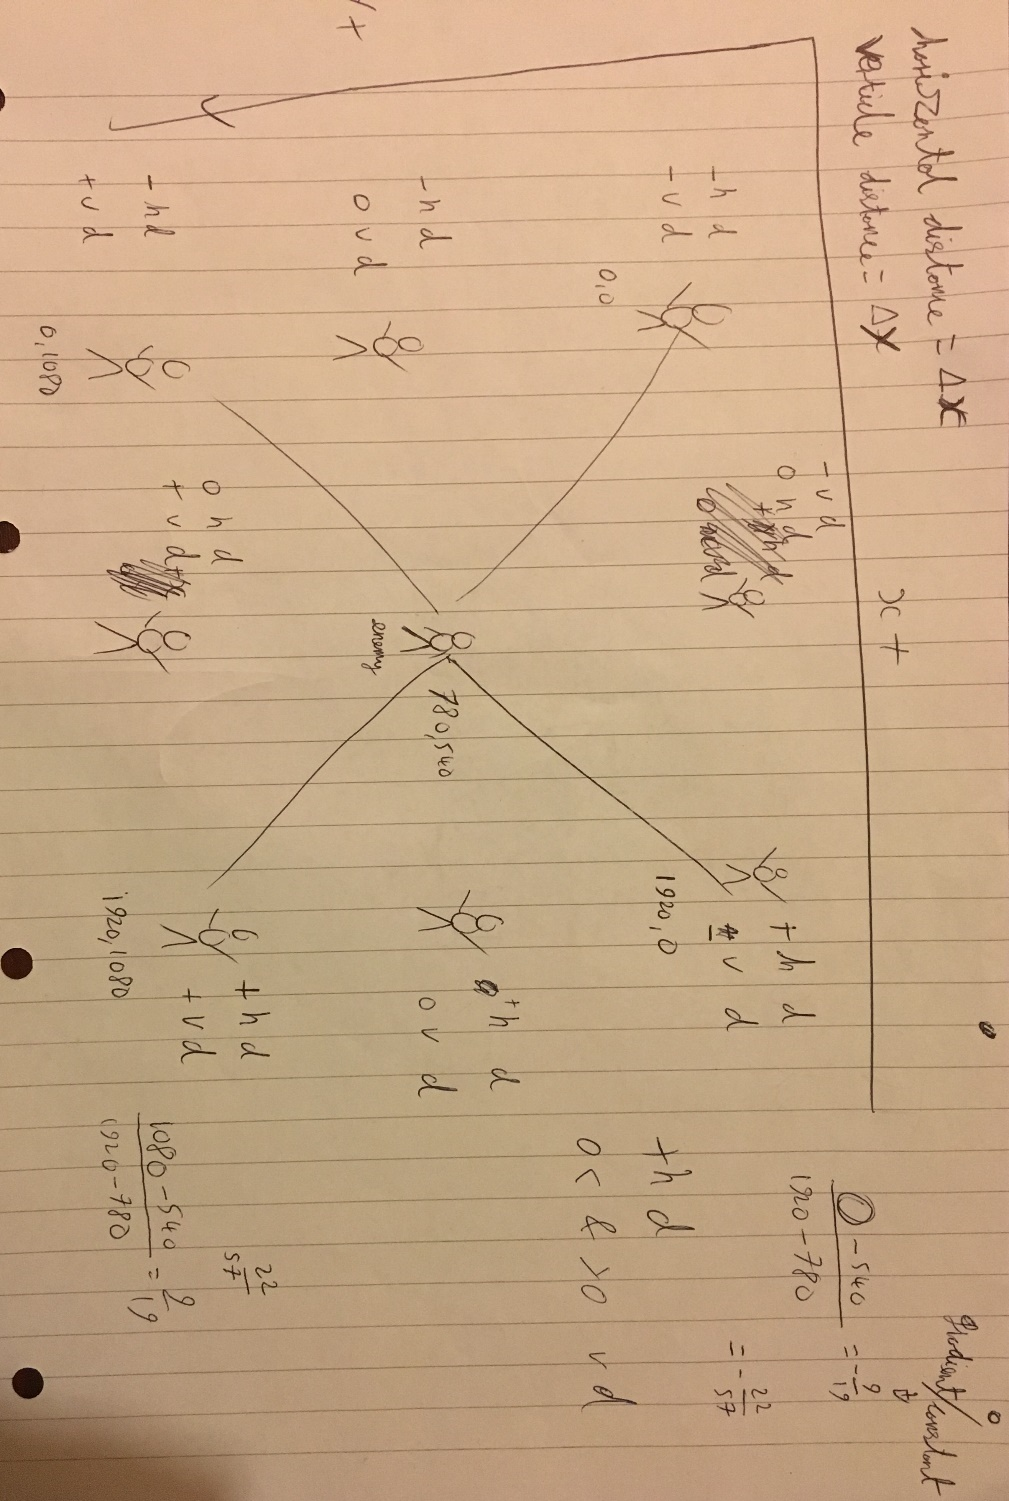 horizontal distance = Δx
verticle distance = Δy
x +
y +
- h d
- v d
0,0
- v d
0 h d
+ h d
- v d
1920,0
- h d
0 v d
enemy
780,540
+ h d
0 v d
- h d
+ v d
0,1080
0 h d
+ v d
+ h d
+ v d
1920,1080
Gradient/constant
0 - 540
1920 - 780
= - 9
19
= - 22
57
+ h d
0 < & > 0 v d
22
57
1080 - 540
1920 - 780
= 9
19